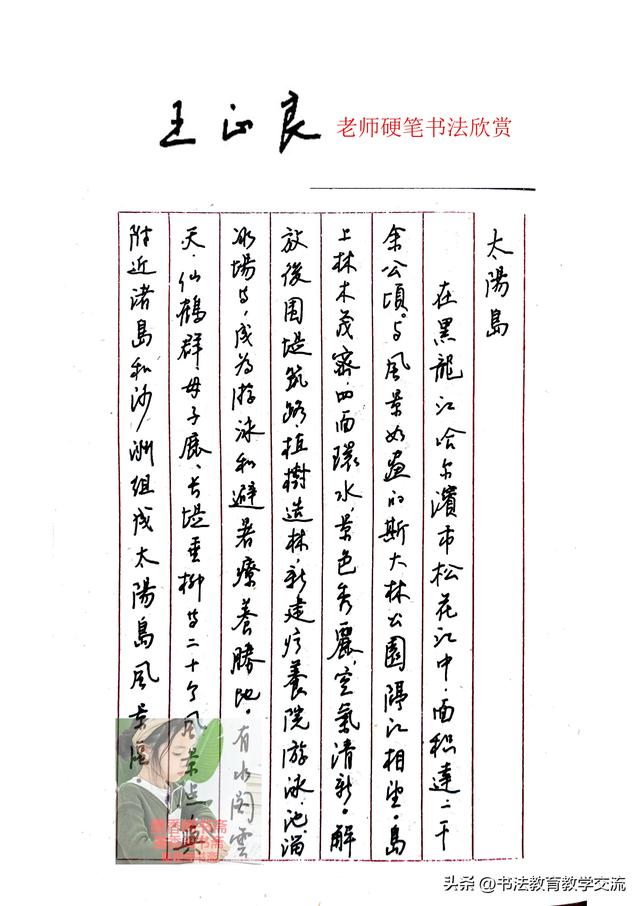 王正良 老师硬笔书法欣赏
太陽島
在黑龍江哈尔濱市松花江中，面积達二千
余公頃。与風景如畫的斯大林公園隔江相望。島
上林木茂密，四面環水，景色秀麗，空氣清新。解
放後围堤筑路，植樹造林，新建疗養院、游泳池、溜
冰場等，成为游泳和避暑療養勝地。有水阁雲
天、仙鶴群、母子鹿、长堤垂柳等二十个風景点，與
附近诸島和沙洲组成太陽島風景區。
头条 @书法教育教学交流